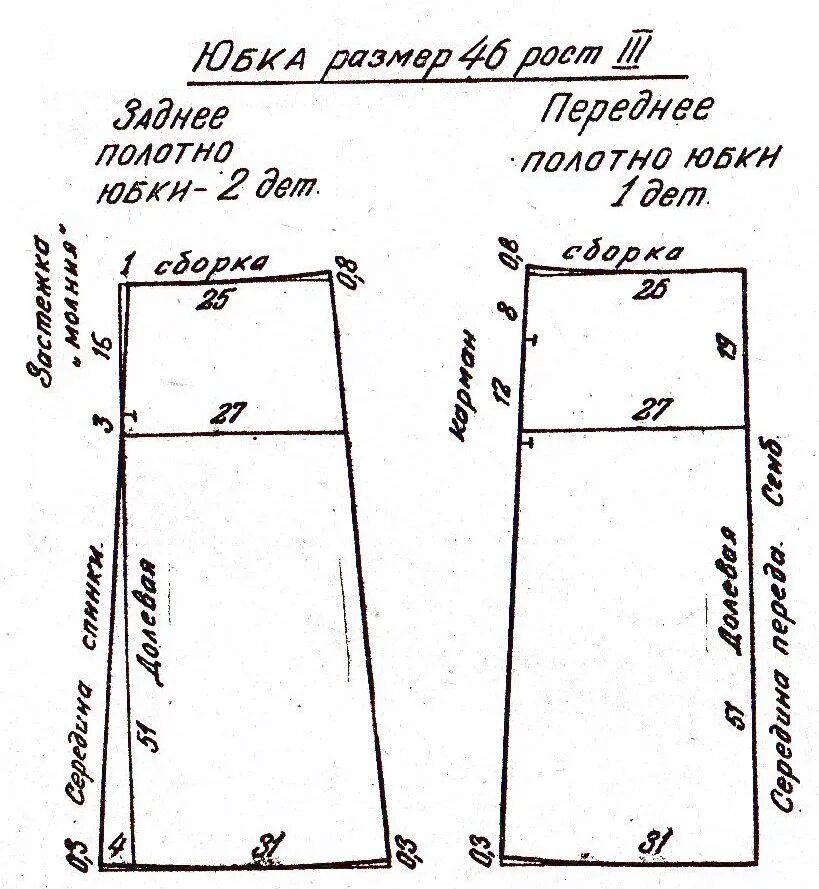 Юбка размер 46 рост III
Заднее
полотно
юбки - 2 дет.
Переднее
полотно юбки
1 дет.
Застежка
„молния"
1 сборка
0,8
25
16
3
27
Середина спинки.
Долевая
51
0,3
4
31
0,3
0,8
сборка
26
8
19
карман
12
27
Сгиб.
Середина переда.
Долевая
51
0,3
31